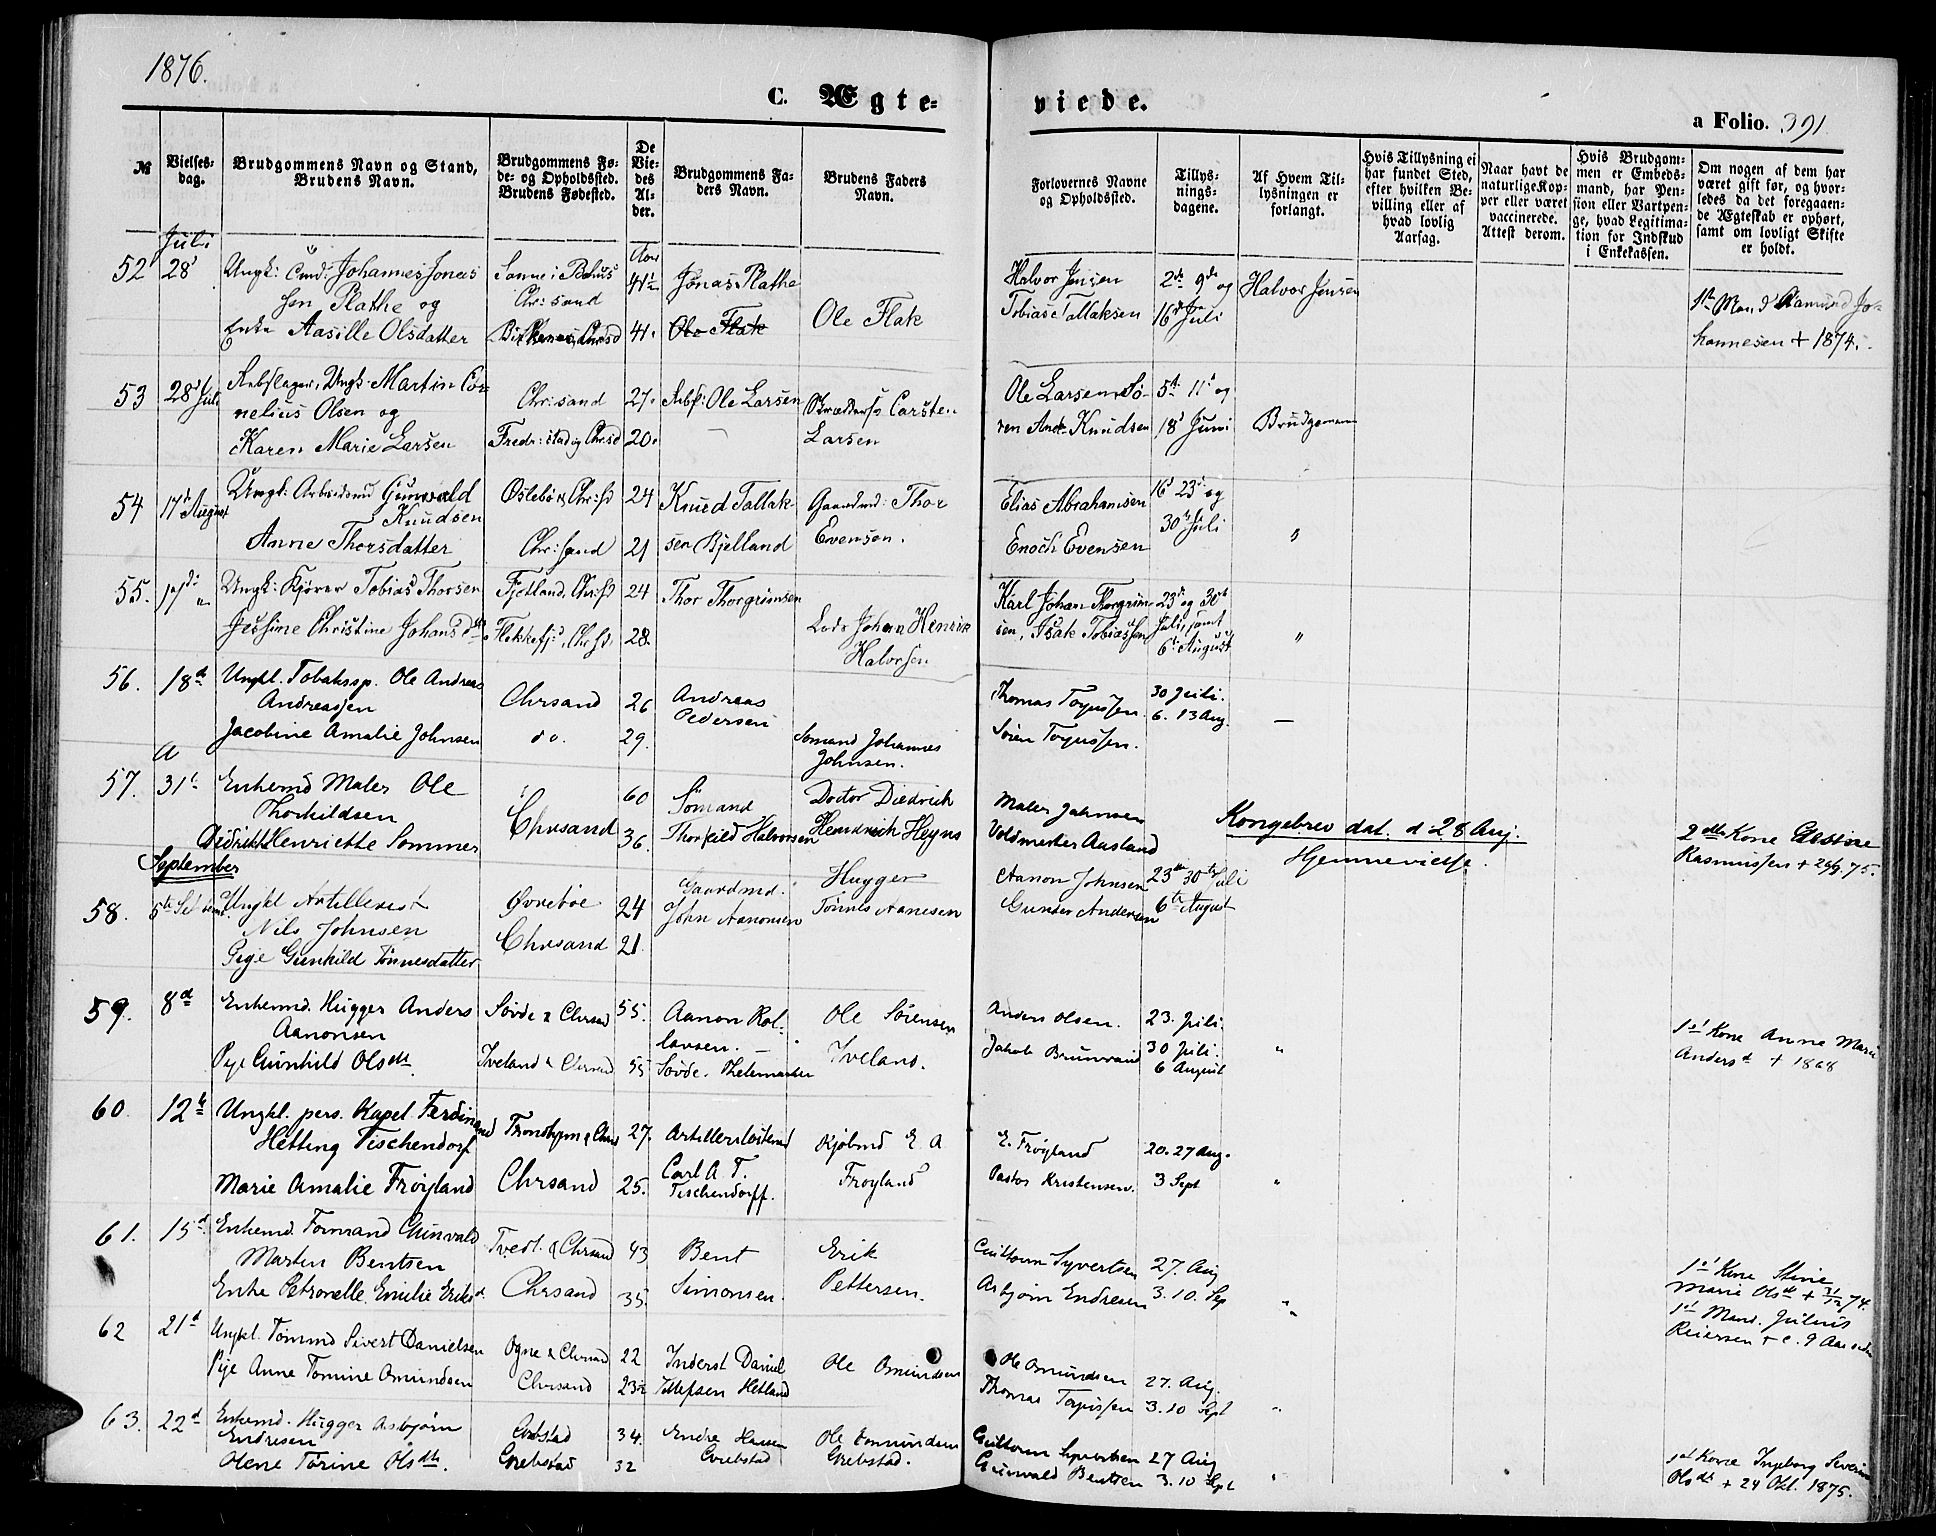 1876.
C. Ægte-
viede.
a Folio. 391.
№
Vielses-
dag.
Brudgommens Navn og Stand,
Brudens Navn.
Brudgommens Fø-
de- og Opholdssted.
Brudens Fødested.
De
Vie-
des
Al-
der.
Brudgommens Fa-
ders Navn.
Brudens Faders
Navn.
Forlovernes Navne
og Opholdssted.
Tillys-
nings-
dagene.
Af Hvem Til-
lysningen er
forlangt.
Hvis Tillysning ei
har fundet Sted,
efter hvilken Be-
villing eller af
hvad lovlig
Aarsag.
Naar havt de
naturlige Kop-
per eller været
vaccinerede.
Attest derom.
Hvis Brudgom-
men er Embeds-
mand, har Pen-
sion eller Vartpen-
ge, hvad Legitima-
tion for Indskud
i Enkekassen.
Om nogen af dem har
været gift før, og hvor-
ledes da det foregaaen-
de Ægteskab er ophørt,
samt om lovligt Skifte
er holdt.
Juli
52 28 Ungk: Johannes Jonas
sen Plathe og
Enke Aasille Olsdatter
Chr:sand
41½
41.
Jonas Plathe
Ole Flak
Ole Flak
Halvor Jensen
Tobias Tallaksen
2de 9de og
16d Juli
Halvor Jensen
1ste Mand Aamund Jo-
hannesen + 1874.
53 28d Juli Rebslager, Ungk. Martin Cor
nelius Olsen og
Karen Marie Larsen
Chr:sand
Fredr:stad og Chr:sd
27.
20.
Rebsl: Ole Larsen
Carsten
Larsen
Ole Larsen, Sø-
ren And. Knudsen
5te 11te og
18d Juni
Brudgommen
54 17d August Ungk: Arbeidsmd Gunvald
Knudsen
Anne Thorsdatter
Øslebø & Chr:sd
Chr:sand
24
21
Knud Tallak-
sen Bjelland
Gaardmd: Thor
Evensen.
Elias Abrahamsen
Enoch Evensen
16d 23d og
30te Juli
"
55. 17de " Ungk: Kjører Tobias Thorsen
Jessine Christine Johansd
Fjotland, Chr:sd
Flekkefj:, Chr:sd.
24
28.
Thor Thorgrimsen
Lods Johan Henrik
Halvorsen
Karl Johan Thorgrim
sen, Isak Tobiassen
23de og 30te
Juli, samt
6te August
"
56. 18d Ungkl. Tobakssp. Ole Andreas
Andreassen
Jacobine Amalie Johnsen
Chrsand
do.
26
29.
Andreas
Pedersen
Sømand Johannes
Johnsen.
Thomas Torjussen
Søren Torjussen.
30 Juli.
6. 13 Aug.
—
57. 31t Enkemd Maler Ole
Thorkildsen
Didrikke Henriette Sommer
Chrsand
60
36.
Sømand
Thorkild Halvorsen
Doctor Diedrich
Hendrich Heyns
Maler Johnsen
Voldmester Aasland
Kongebrev dat. d 28 Aug.
Hjemmevielse.
2den Kone Gestine
Rasmussen + 75.
September
58. 5te Septemb Ungkl Artillerist
Nils Johnsen
Pige Gunhild Tønnesdatter
Øvrebøe
Chrsand
24
21.
Gaardmd.
John Aanonsen
Hugger
Tønnes Aanesen
Aanon Johnsen
Gunder Andersen
23de 30te Juli
6te August
59. 8d Enkemd. Hugger Anders
Aanonsen
Pige Gunhild Olsdtr.
Søvde & Chrsand
Iveland & Chrsand
55.
55
Aanon Rol-
lavsen.
Søvde. Thelemarken
Ole Sørensen
Iveland.
Anders Olsen.
Jakob Brunvand
23. Juli.
30 Juli.
6 August
"
1ste Kone Anne Marie
Andersd + 1868
60. 12te Ungkl. pers. Kapel. Ferdinand
Hetting Tischendorf
Marie Amalie Frøyland
Trondhjem & Chrsand
Chrsand
27.
25.
Artilleriløitenand
Carl A T.
Tischendorff.
Kjøbmd E A
Frøyland
E. Frøyland
Pastor Kristensen.
20. 27 Aug.
3 Sept
"
61. 15d. Enkemd. Tømmand Gunvald
Martin Bentsen
Enke Petronelle Emilie Eriksd.
Tvedt. & Chrsand
Chrsand
43
35
Bent
Simonsen.
Erik
Pettersen.
Guttorm Syvertsen
Asbjørn Endresen
27. Aug
3. 10. Sep
"
1ste Kone Stine
Marie Olsdt + 31/12 74.
1ste Mand. Julius
Reiersen + c. 9 Aar siden
62 21d Ungkl. Tømmd Sivert Danielsen
Pije Anne Tomine Omundsen
Ogne & Chrsand
Chrsand
22
23½
Inderst Daniel
Tellefsen Hetland
Ole Omundsen
Ole Omundsen
Thomas Torjussen
27. Aug.
3. 10 Sept
"
63. 22d Enkemd. Hugger Asbjørn
Endresen
Olene Tørine Olsdtr.
Grebstad
Grebstad
34.
32
Endre Hansen
Grebstad
Ole Omundsen
Grebstad.
Guttorm Syvertsen
Gunvald Bentsen
27 Aug
3. 10 Sept
"
1ste Kone Ingeborg Severine
Olsdt + 24 Okt. 1875.